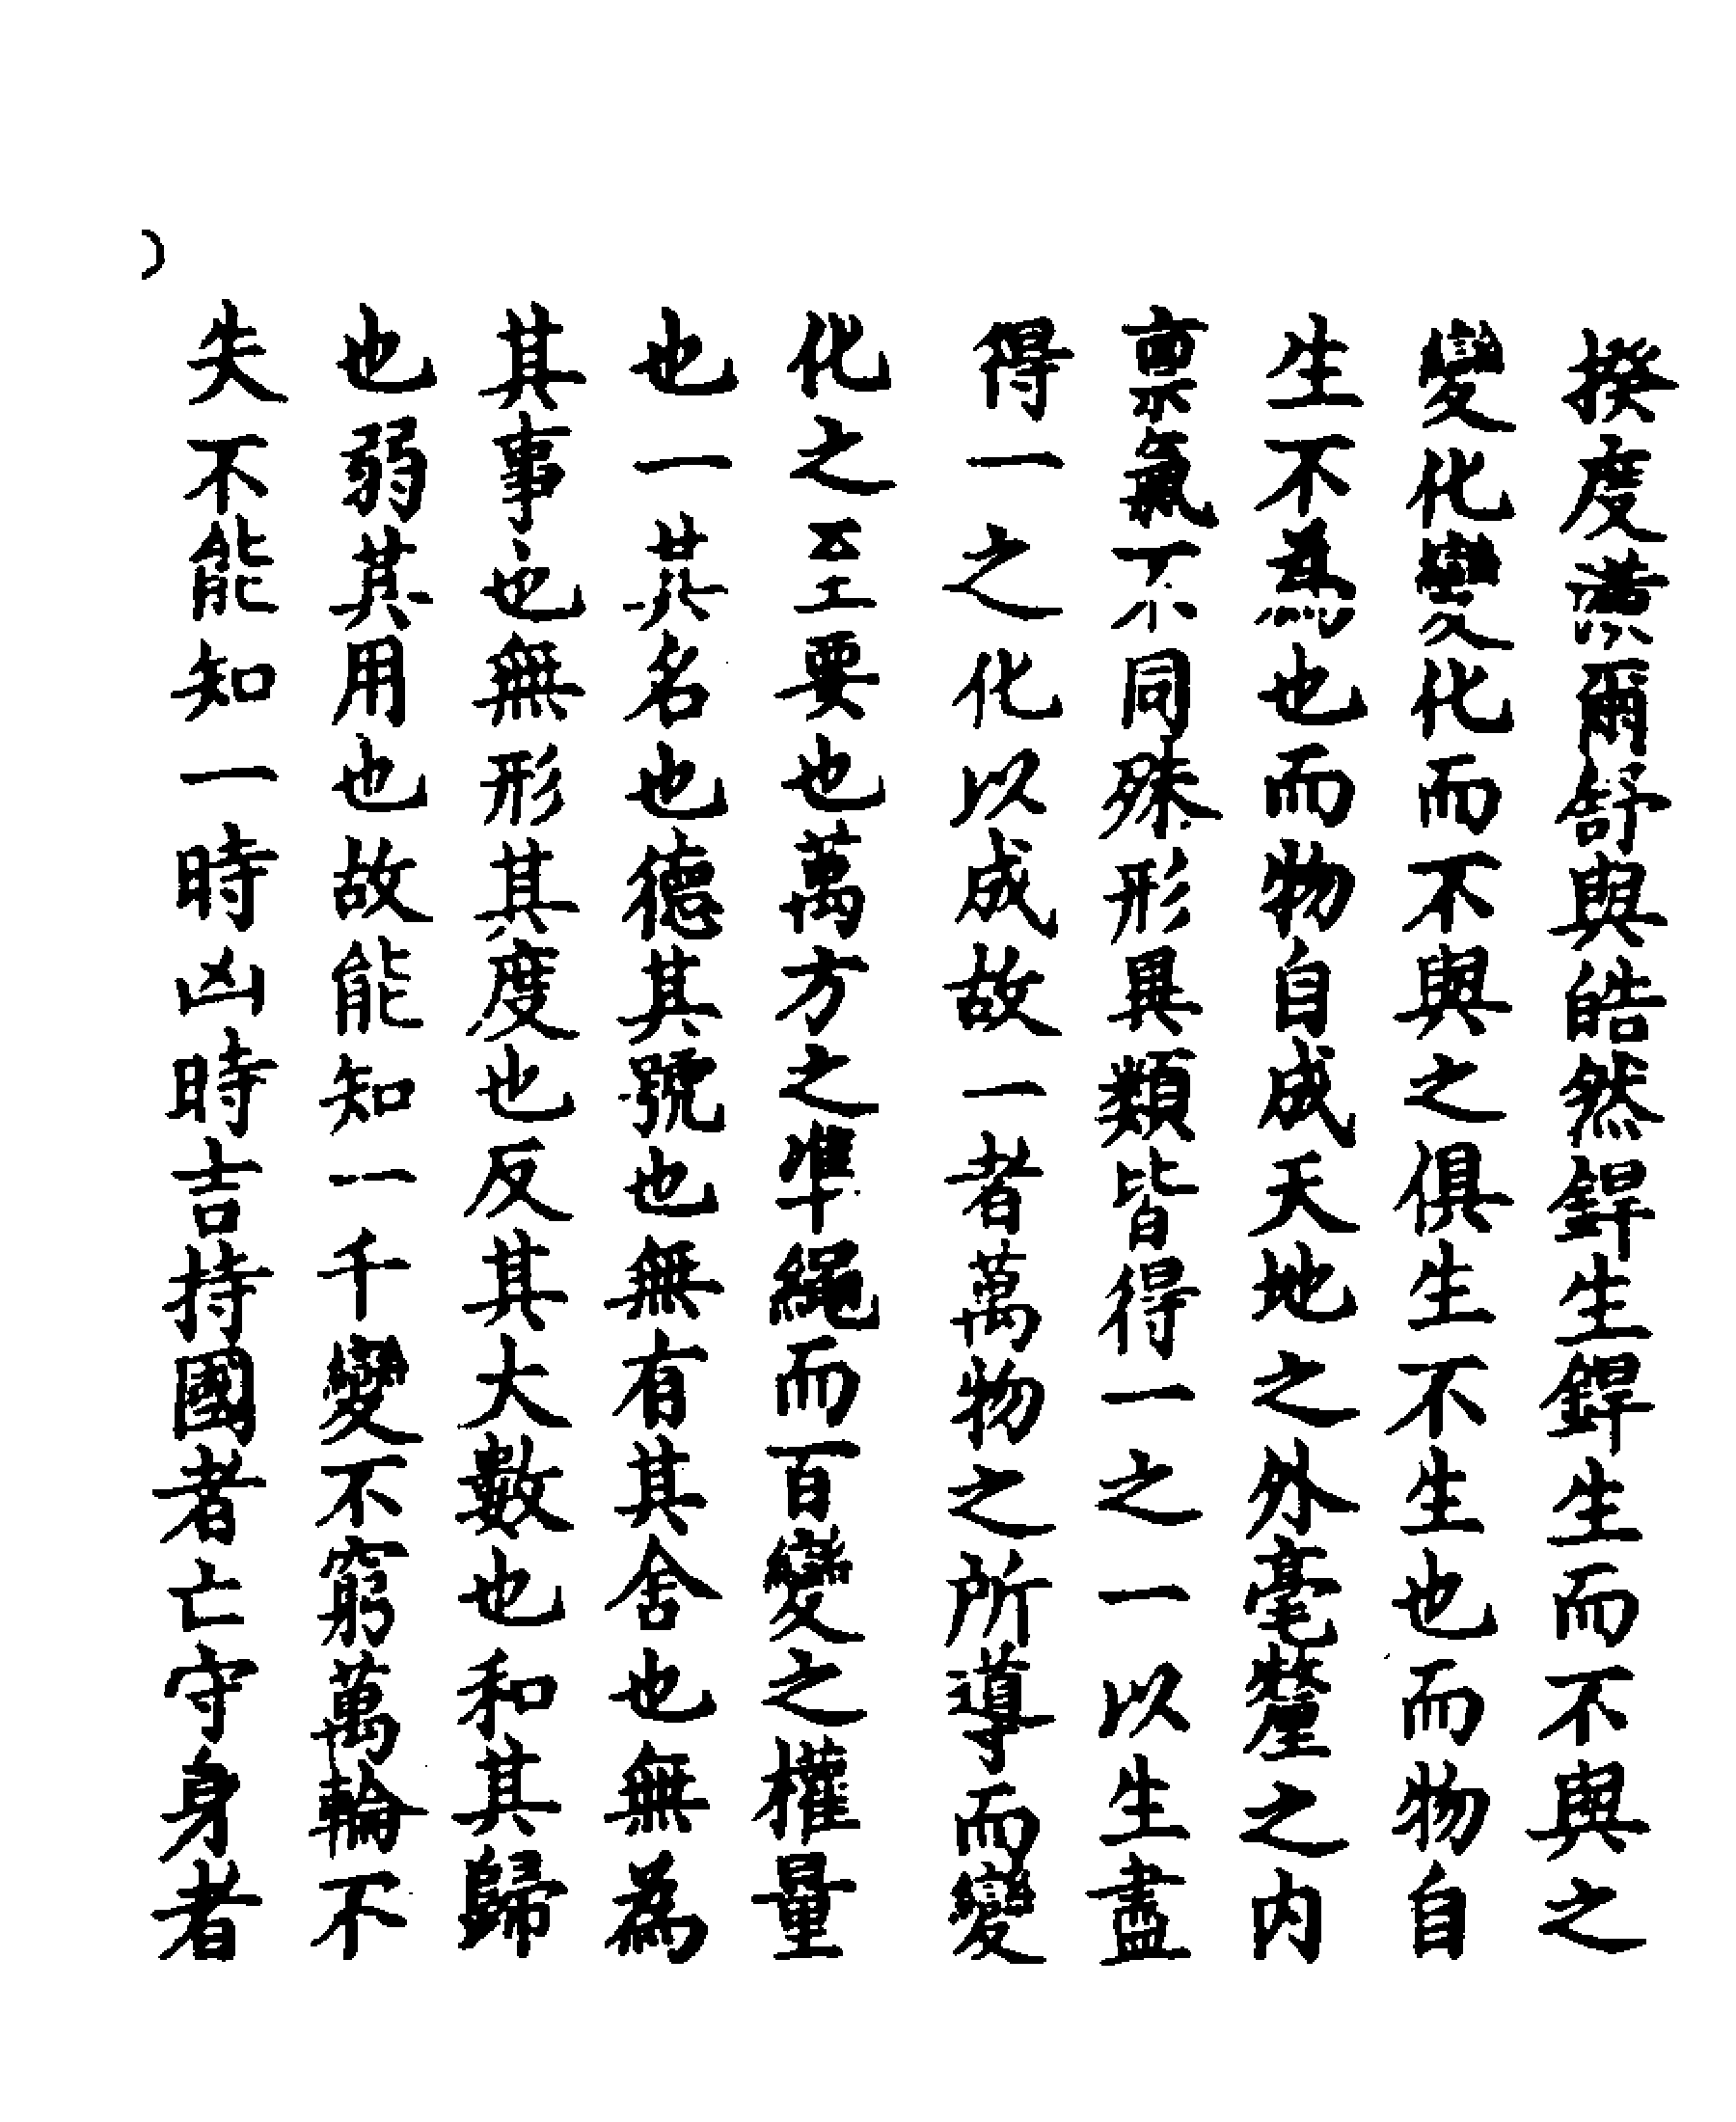 揆度潢爾舒與皓然銲生銲生而不與之
變化變化而不與之俱生不生也而物自
生不為也而物自成天地之外毫釐之内
禀氣不同殊形異類皆得一之一以生盡
得一之化以成故一者萬物之所導而變
化之至要也萬方之準繩而百變之權量
也一其名也德其號也無有其舍也無為
其事也無形其度也反其大數也和其歸
也弱其用也故能知一千變不窮萬輪不
失不能知一時凶時吉持國者亡守身者